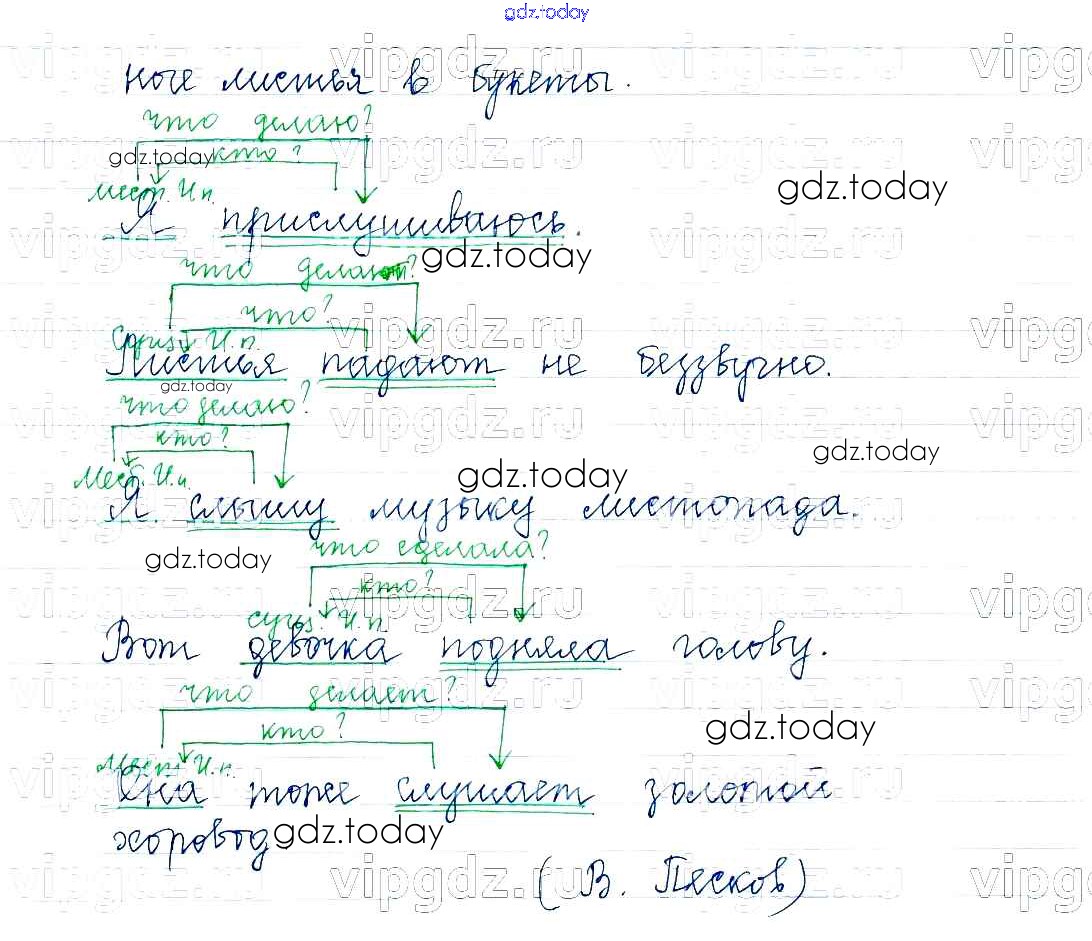 gdz.today
ные листья в букеты.
что делаю?
gdz.today кто?
мест. И.п.
Я прислушиваюсь.
gdz.today
gdz.today
что делают?
что?
сущ. И.п.
Листья падают не беззвучно.
gdz.today
что делаю?
кто?
gdz.today
gdz.today
Мест. И.п.
Я слышу музыку листопада.
gdz.today
что сделала?
кто?
сущ. И.п.
Вот девочка подняла голову.
что делает?
кто?
gdz.today
мест. И.п.
Она тоже слушает золотой
хоровод gdz.today
(В. Песков)
vipgdz.ru vipgdz.ru vipgdz